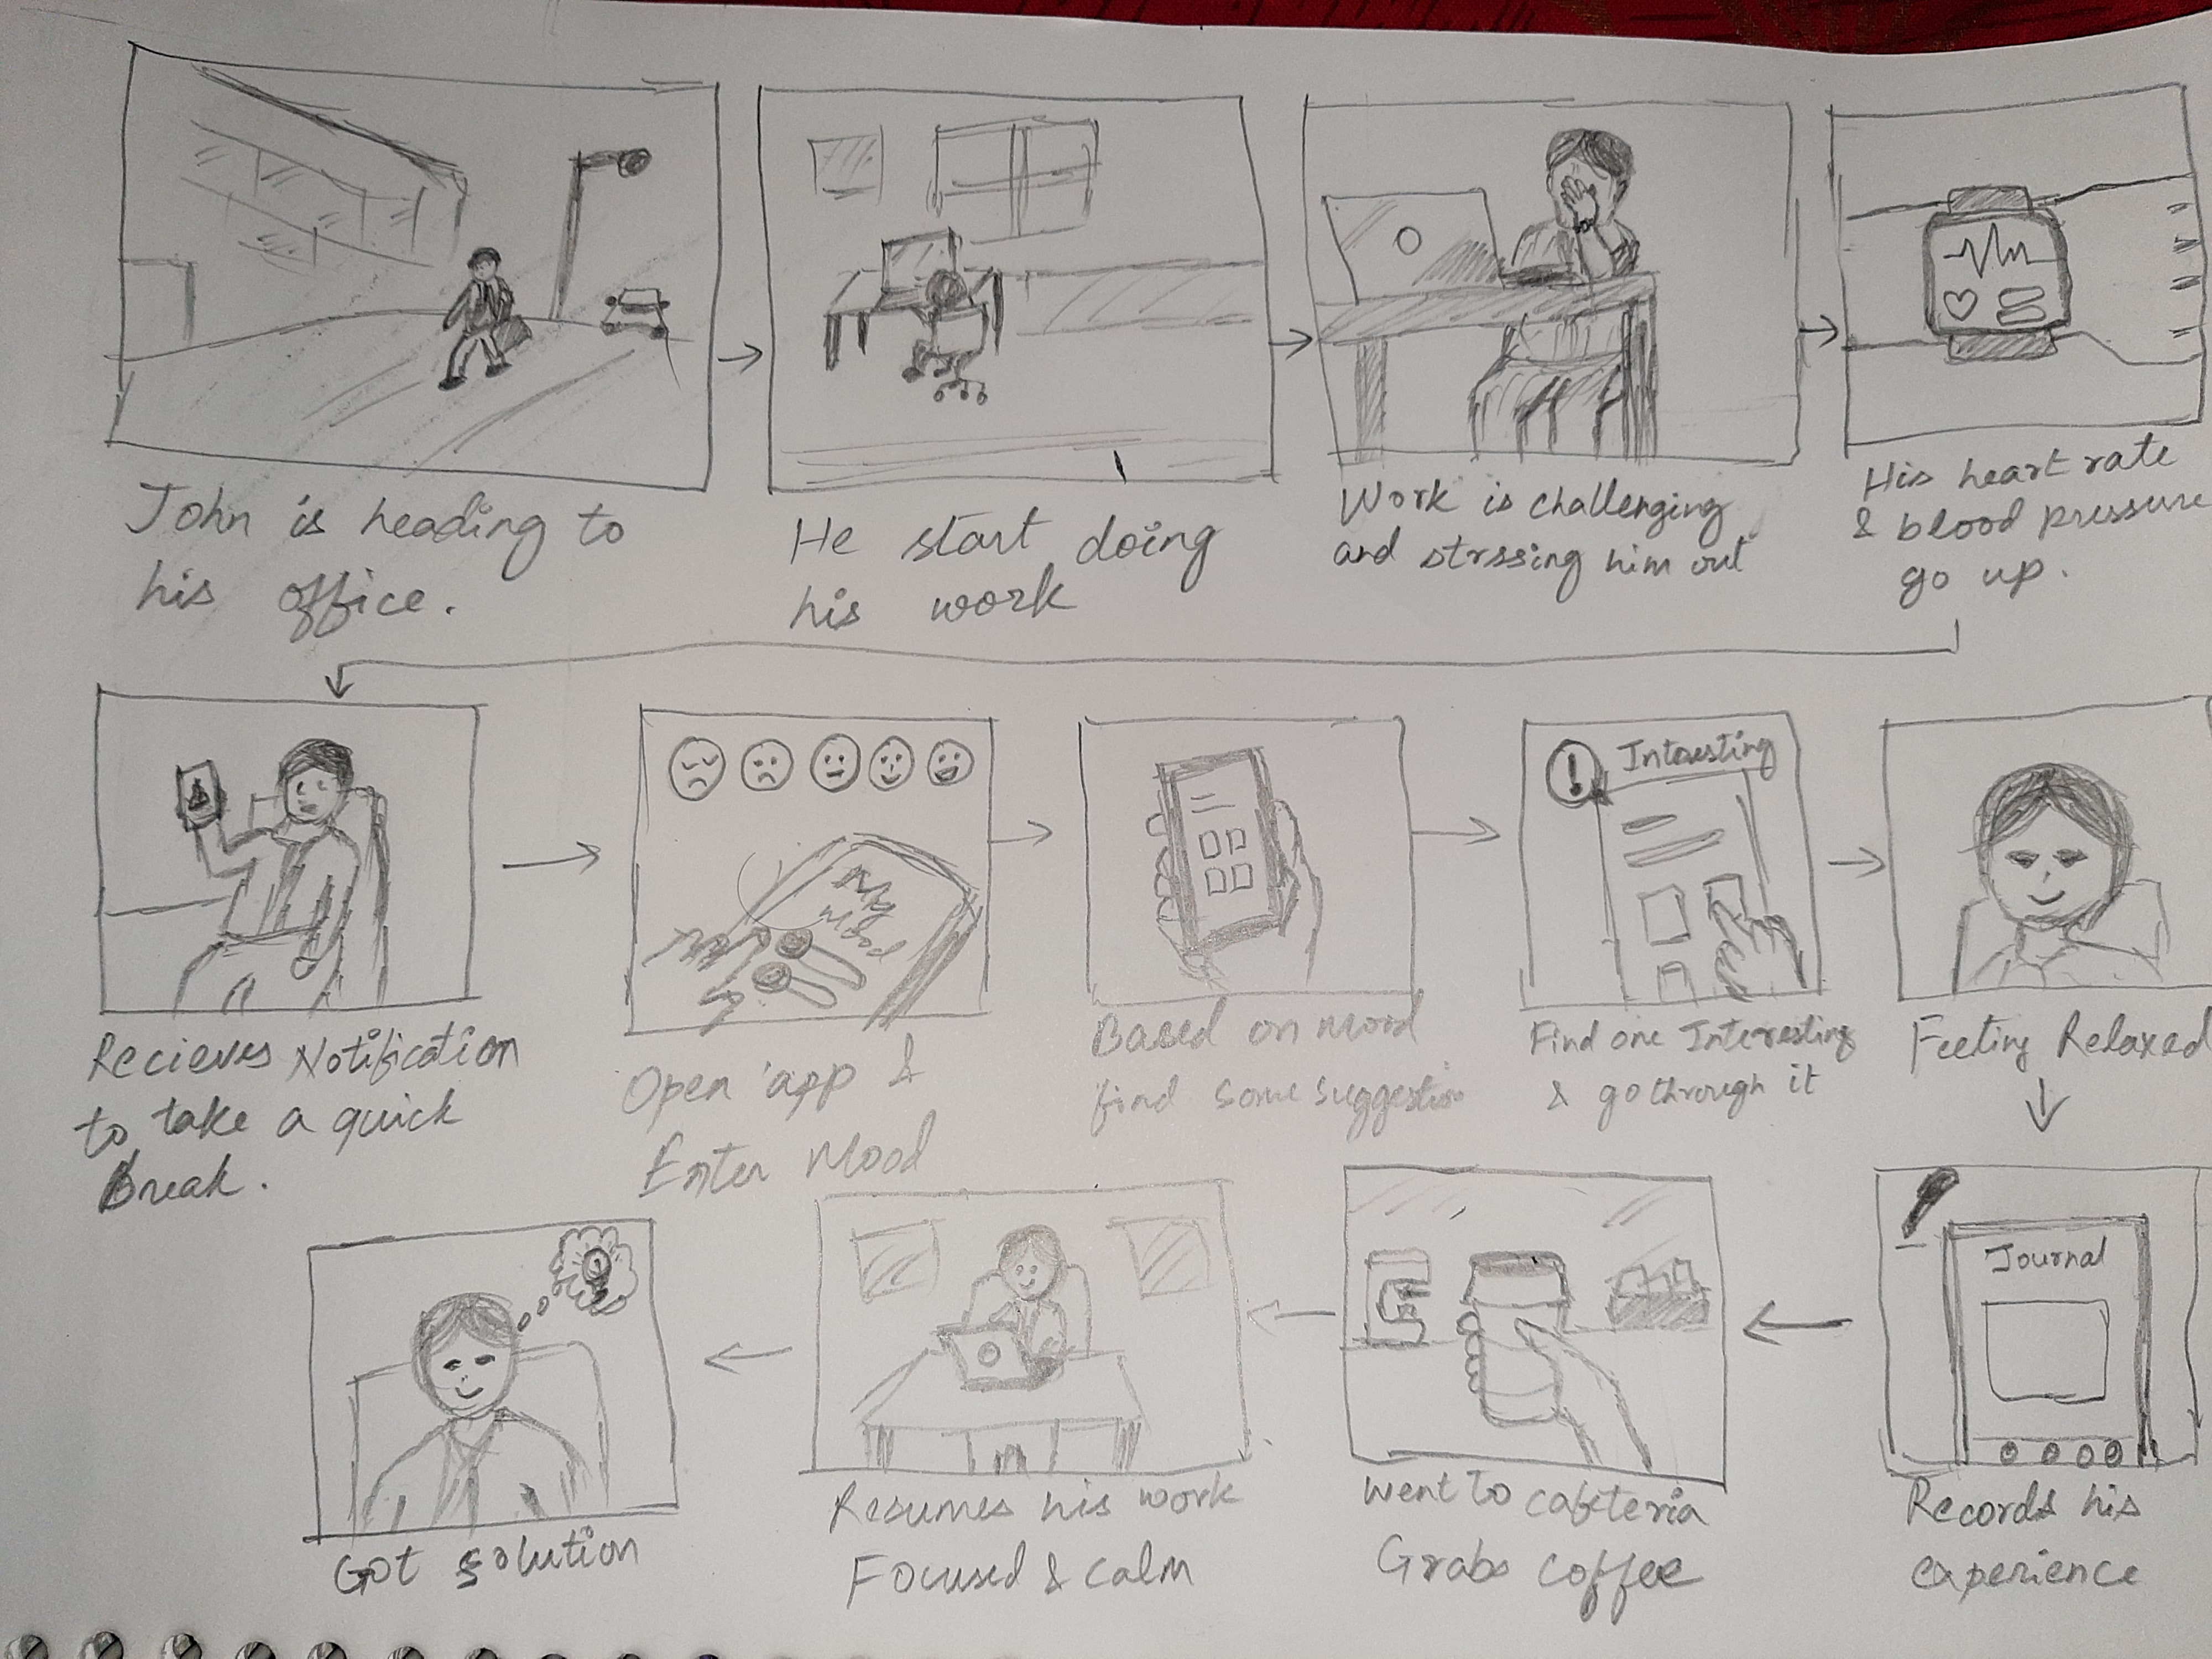 John is heading to
his office.
He start doing
his work
Work is challenging
and strssing him out
His heart rate
& blood pressure
go up.
Recieves Notification
to take a quick
Break.
My
Mood
Open app &
Enter Mood
Based on Mood
find some suggestion
! Interesting
Find one Interesting
& go through it
Feeling Relaxed
Journal
Records his
experience
Went to cafeteria
Grabs coffee
Resumes his work
Focused & calm
Got solution